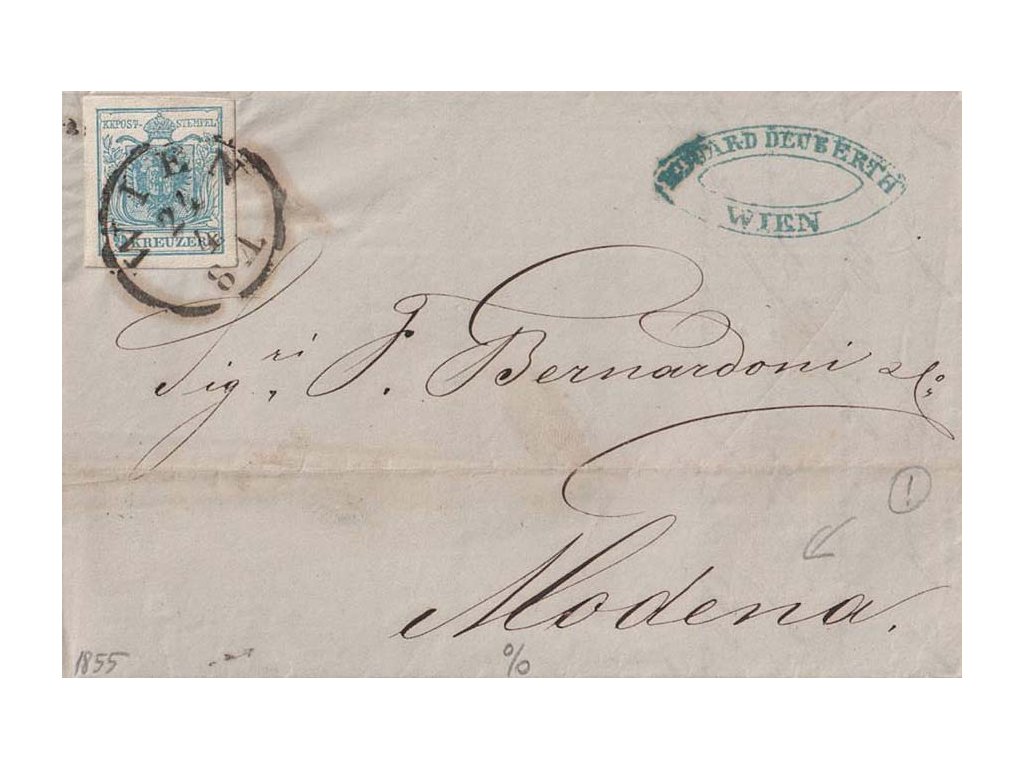 KKPOST-STEMPEL
KREUZER
WIEN
EDUARD DEUBERTH
WIEN
Sigri. F. Bernardoni & Co.
Modena.
!
1855
%